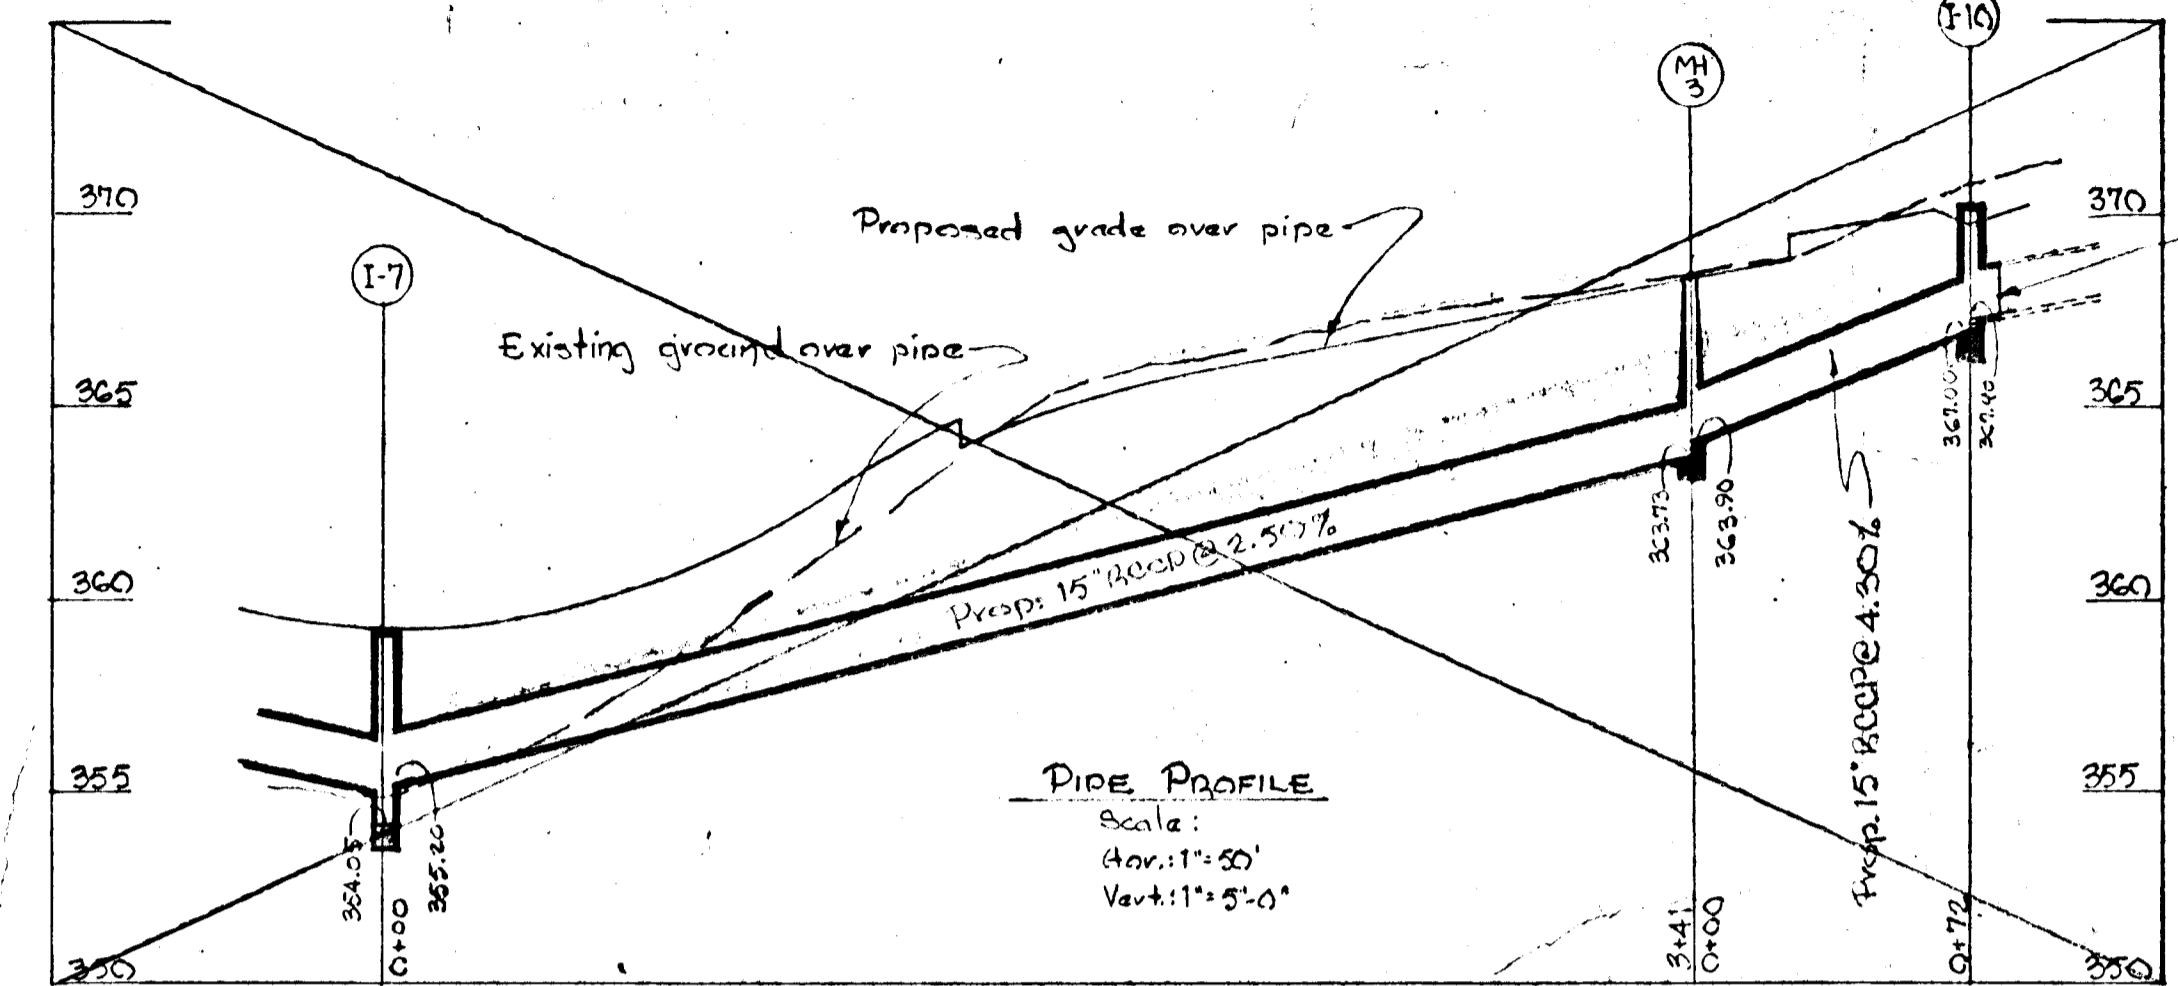 I-10
MH
3
I-7
370
370
Proposed grade over pipe
Existing ground over pipe
365
365
367.00
367.40
363.73
363.90
Prop. 15" RCCP @ 2.50%
Prop. 15" RCCP @ 4.30%
360
360
355
355
PIPE PROFILE
Scale:
Hor.: 1" = 50'
Vert.: 1" = 5'-0"
355.20
0+00
3+41
0+00
0+72
350
350